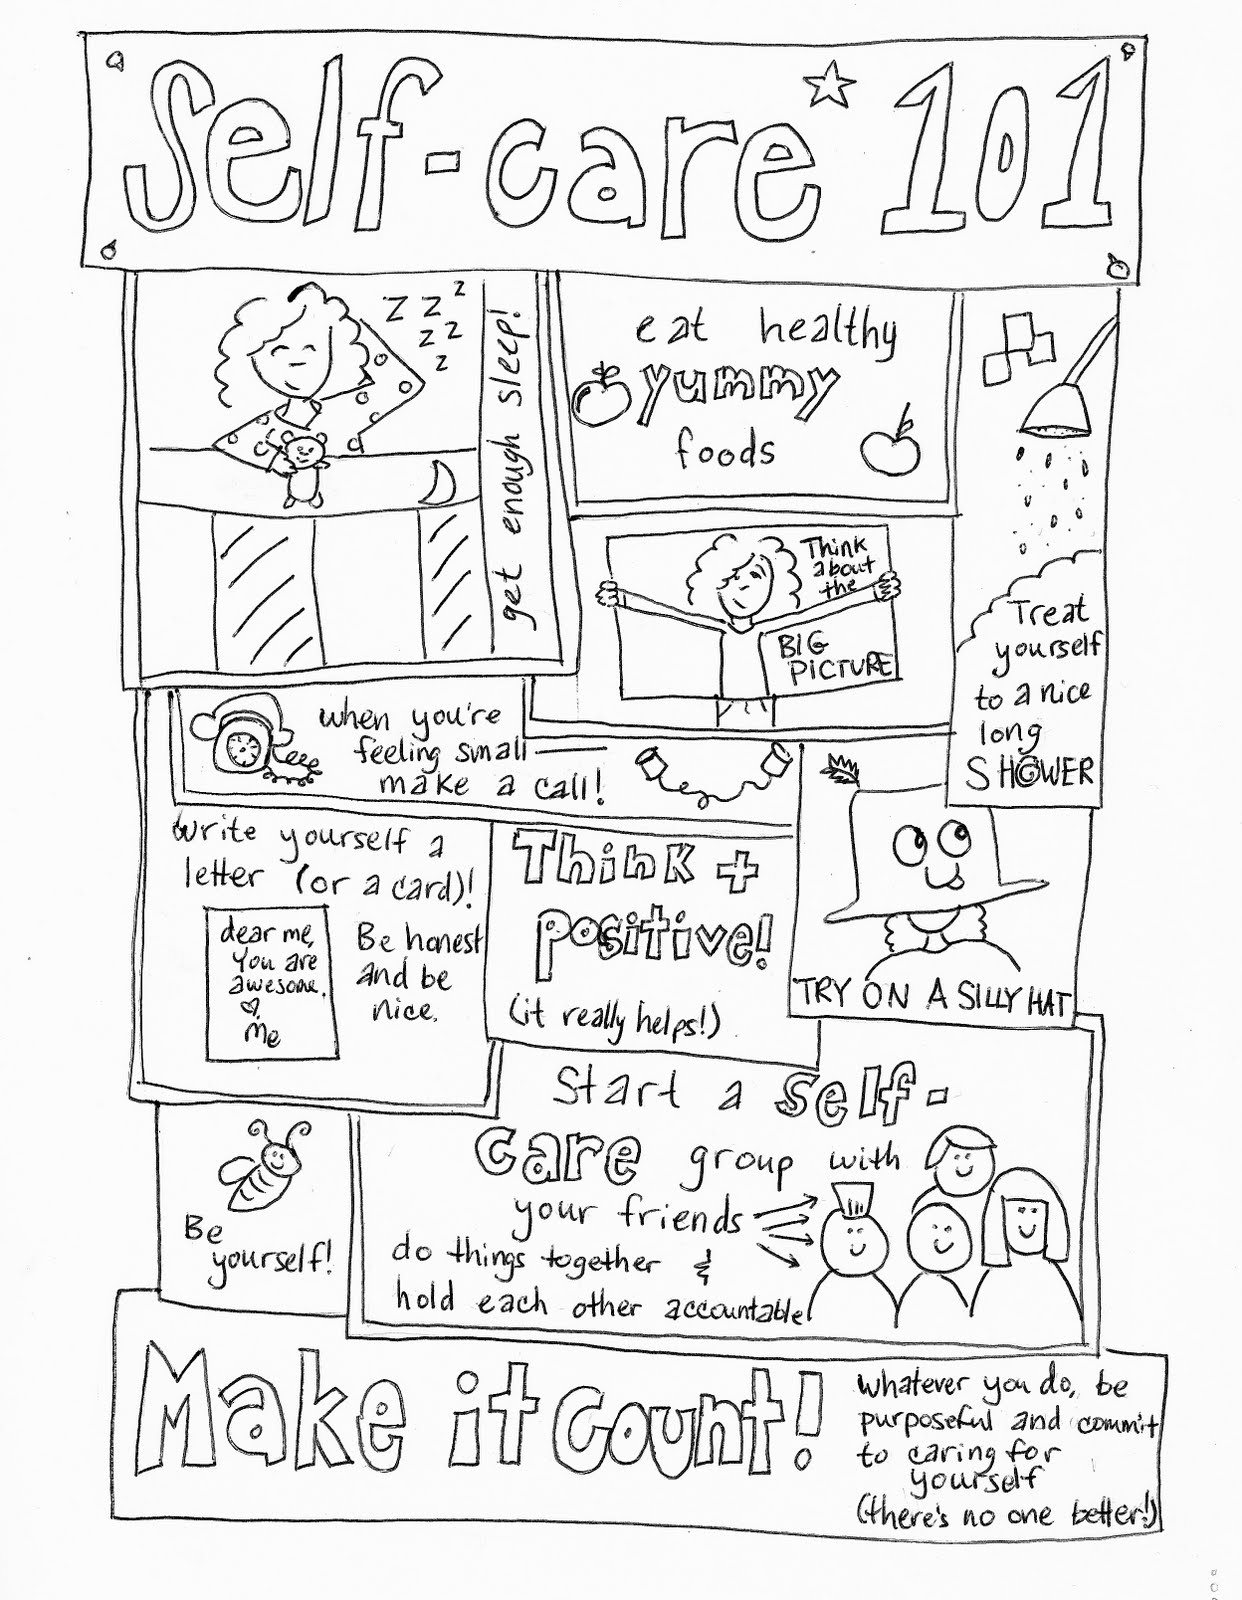 Self-care 101
z z z
z z
z
get enough sleep!
eat healthy
yummy
foods
Think
about
the
BIG
PICTURE
Treat
yourself
to a nice
long
SHOWER
when you're
feeling small
make a call!
Write yourself a
letter (or a card)!
dear me,
you are
awesome.
♡,
me
Be honest
and be
nice.
Think +
positive!
(it really helps!)
TRY ON A SILLY HAT
Start a self-
care group with
your friends
do things together &
hold each other accountable
Be
yourself!
Make it count!
whatever you do, be
purposeful and commit
to caring for
yourself
(there's no one better!)